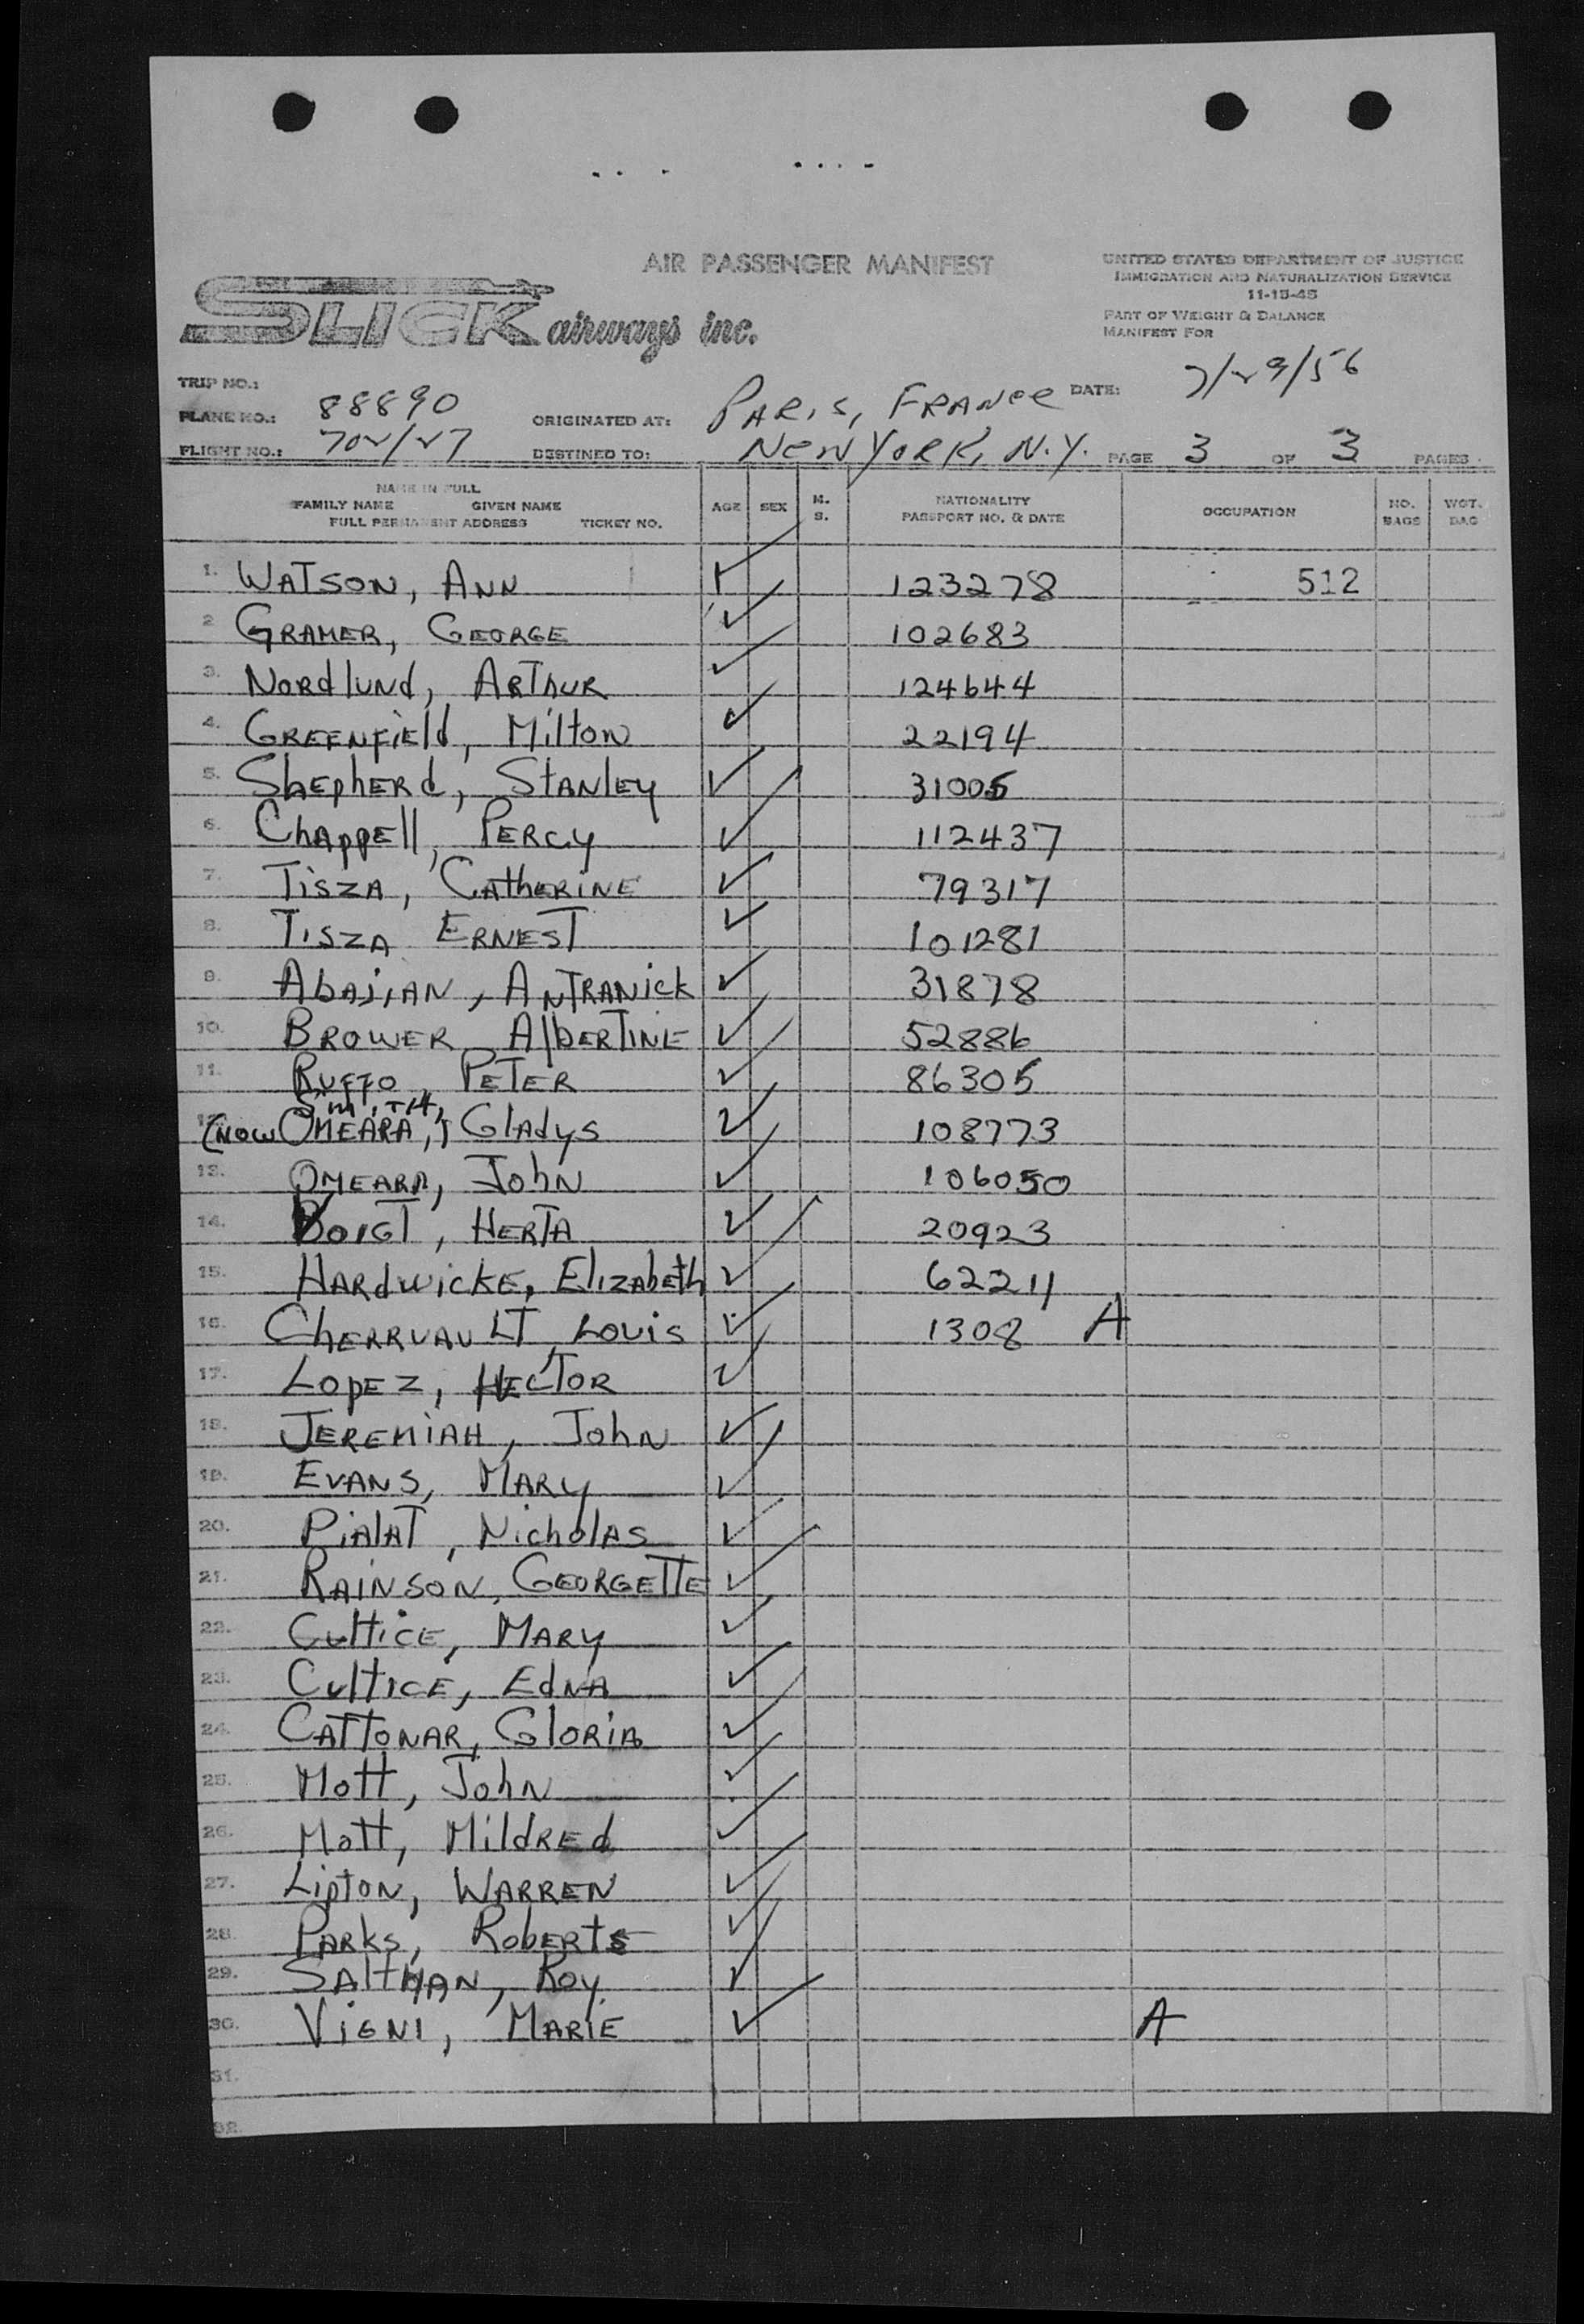 AIR PASSENGER MANIFEST
UNITED STATES DEPARTMENT OF JUSTICE
IMMIGRATION AND NATURALIZATION SERVICE
11-15-45
PART OF WEIGHT & BALANCE
MANIFEST FOR
SLICK airways inc.
TRIP NO.:
PLANE NO.: 88890
FLIGHT NO.: 702/27
ORIGINATED AT: PARIS, FRANCE
DESTINED TO: NEW YORK, N.Y.
DATE: 7/29/56
PAGE 3 OF 3 PAGES
NAME IN FULL
FAMILY NAME GIVEN NAME
FULL PERMANENT ADDRESS TICKET NO.
AGE SEX M. S.
NATIONALITY
PASSPORT NO. & DATE
OCCUPATION
NO. BAGS
WGT. BAG
1. WATSON, ANN 123278 512
2. GRAMER, GEORGE 102683
3. Nordlund, ARThUR 124644
4. GREENFiEld, Milton 22194
5. ShEphERd, STANlEy 31005
6. ChAppEll, PERCy 112437
7. TiSZA, CAthERINE 79317
8. TISZA ERNEST 101281
9. AbAjiAN, ANTRANick 31878
10. BROWER AlbERTINE 52886
11. RuFFO, PETER 86305
Smith,
12. (NOW OMEARA,) GlAdyS 108773
13. OMEARA, John 106050
14. VOIGT, HERTA 20923
15. HARdwickE, ElizAbeth 62211
16. ChERRUAULT, LOUiS 1308 A
17. LopEZ, HECTOR
18. JEREMiAH, John
19. EVANS, MARy
20. PiAlAT, NicholAS
21. RAINSON, GEORGETTE
22. CulticE, MARy
23. CulticE, EdNA
24. CATTONAR, GloRiA
25. Mott, John
26. Mott, MildREd
27. LiptoN, WARREN
28. PARkS, RobERtS
29. SAltMAN, Roy
30. ViGNI, MARiE A
31.
32.